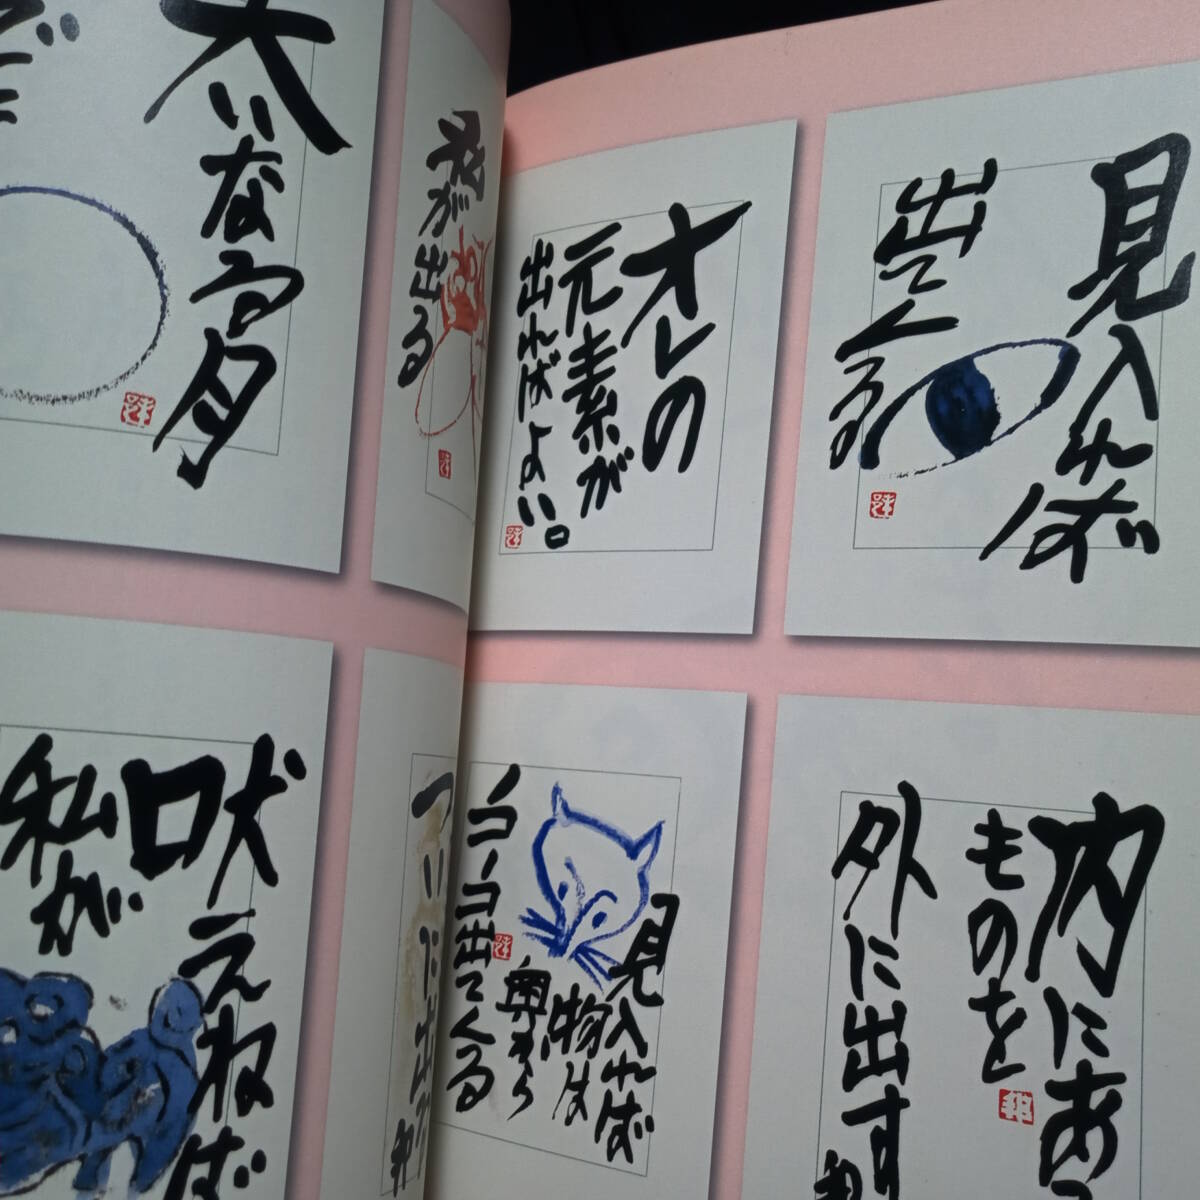 見入れば
出てくる
オレの
元素が
出ればよい。
内にある
ものを
外に出す
見入れば
物は
奥から
ノコノコ出てくる
が出る
大いなる
ついに出た
吠えねば
私が